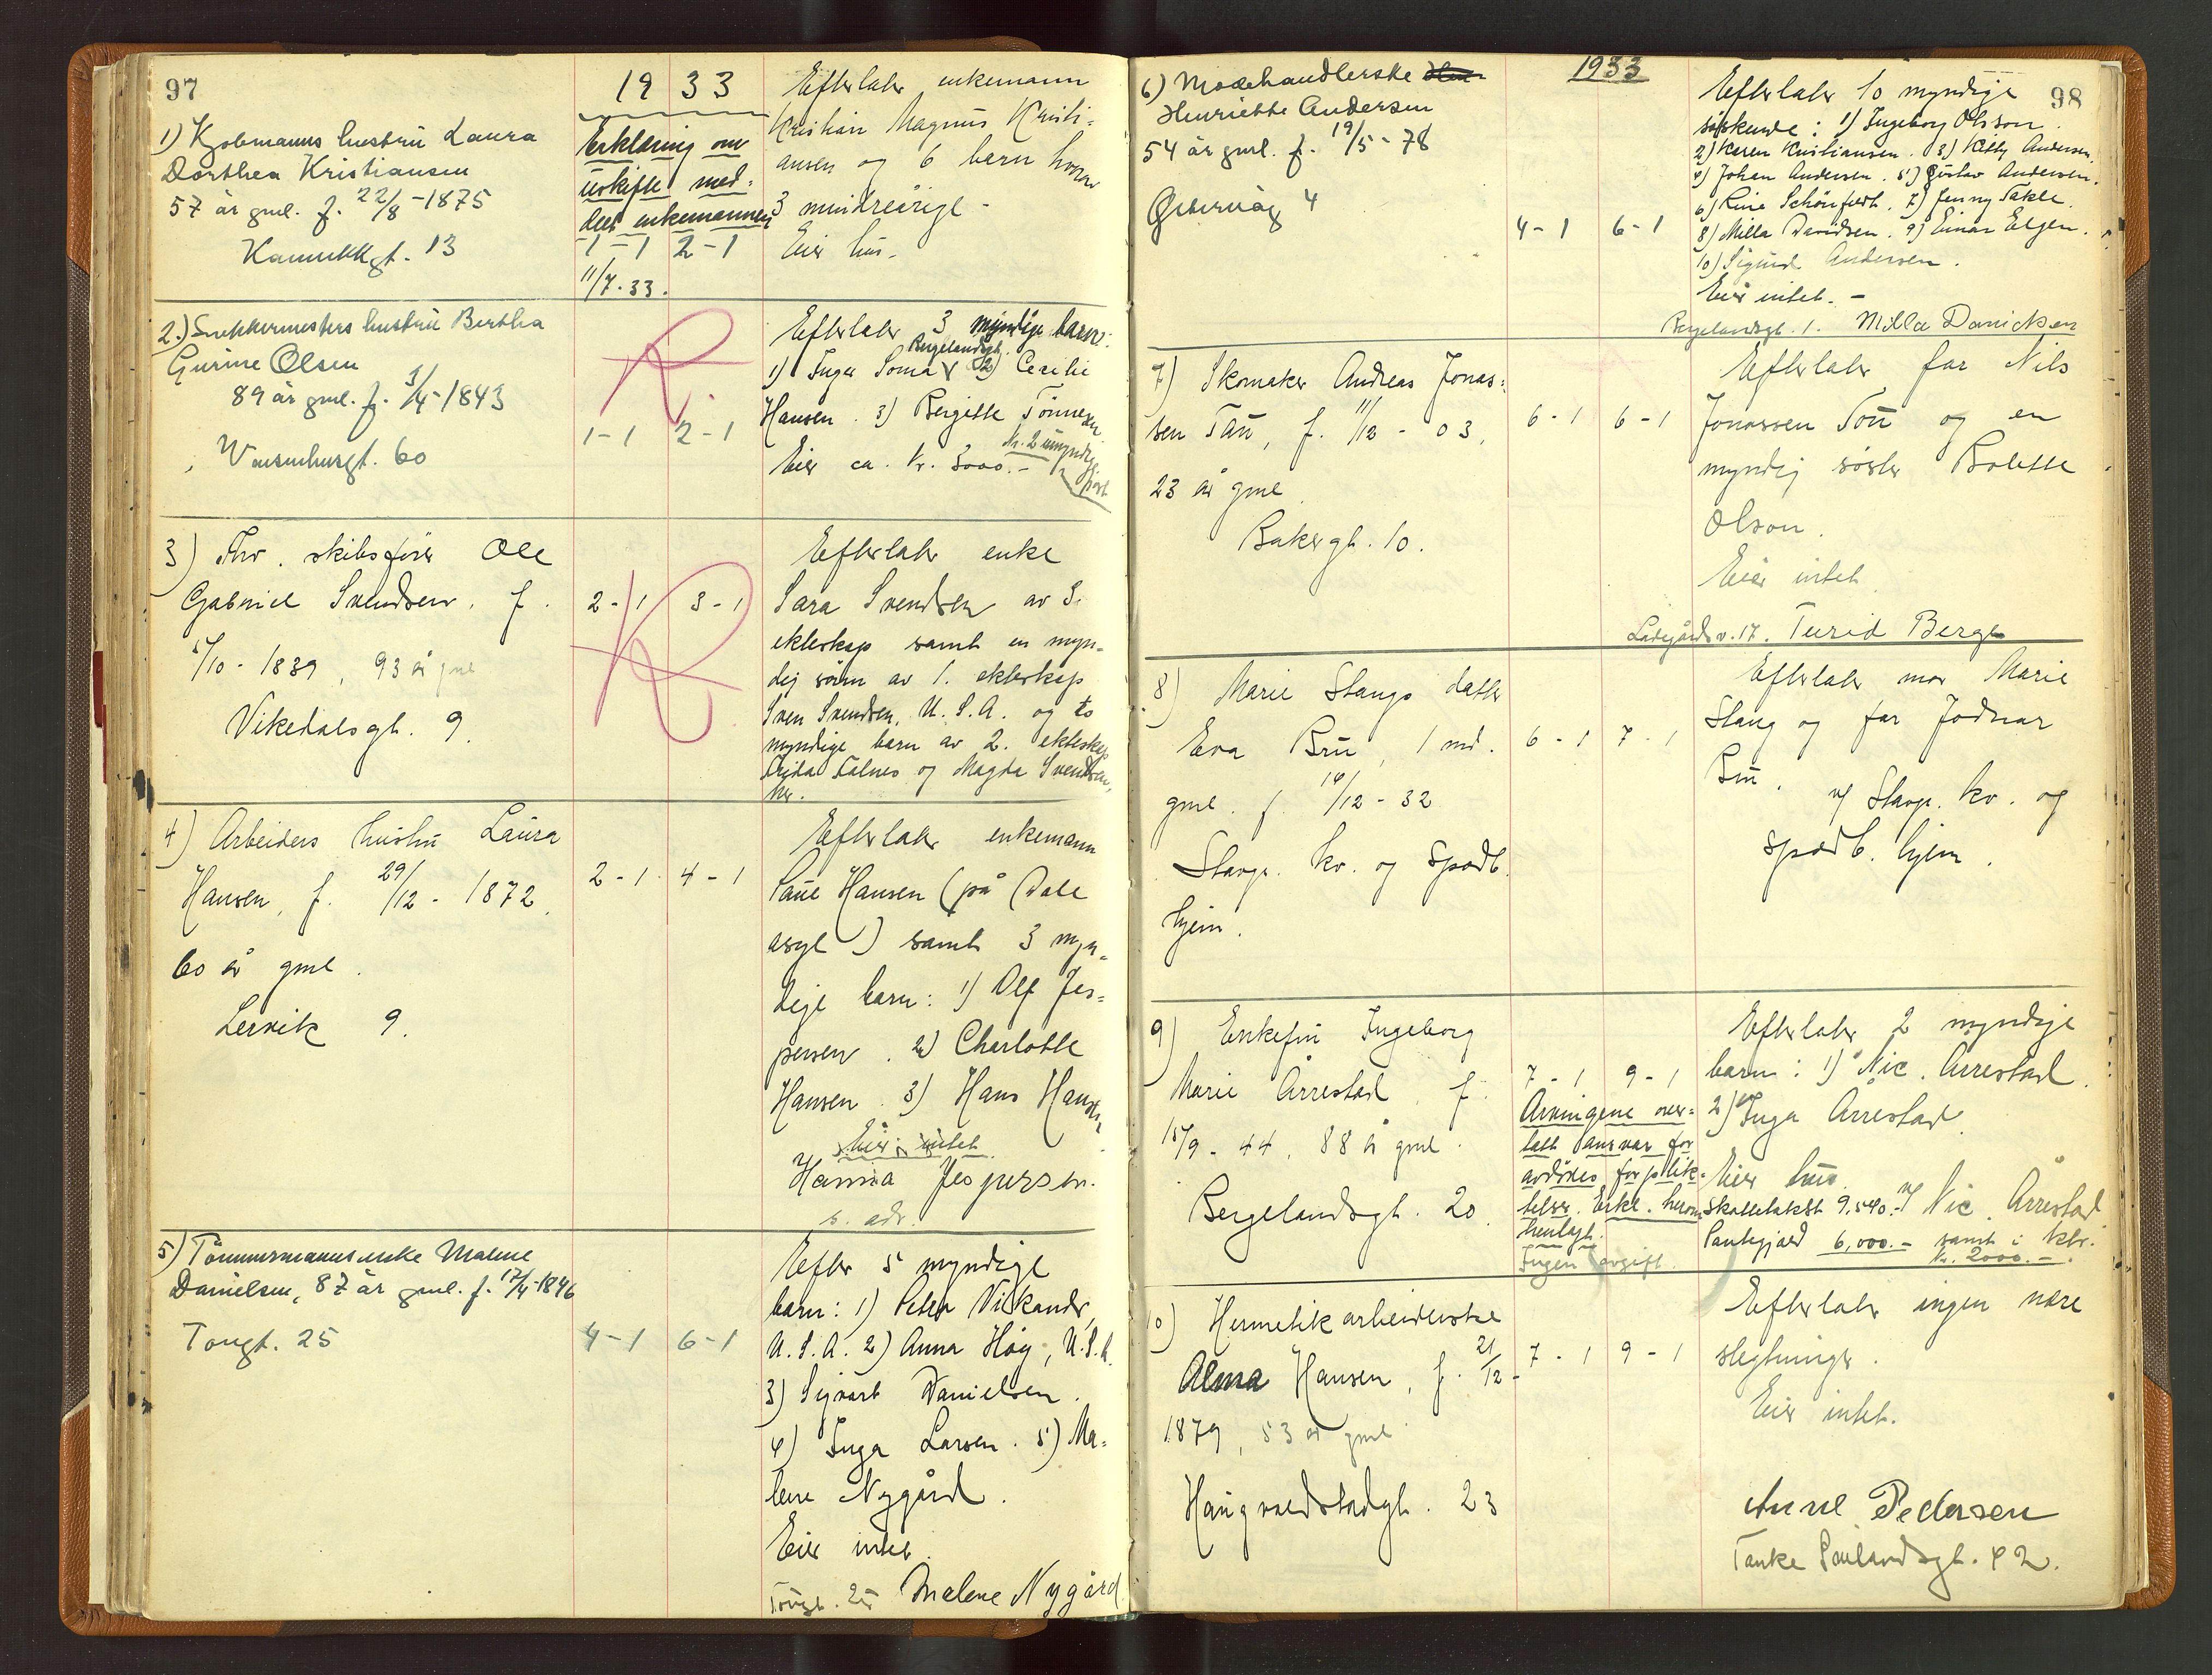 97
19 33
1) Kjøbmanns hustru Laura
Dorthea Kristiansen
57 år gml. f. 22/8-1875
Kannikkgt. 13
Erklæring om
uskifte med-
delt enkemannen
1-1 2-1
11/7.33.
Efterlater enkemann
Kristian Magnus Kristi-
ansen og 6 barn hvorav
3 mindreårige -
Eier hus.
2.) Snekkermesters hustru Bertha
Gurine Olsen
89 år gml. f. 3/4-1843
Vaisenhusgt. 60
1-1 2-1
R.
Efterlater 3 myndige barn:
Bergelandsgt.
1) Inga Soma 2) Cecilie
Hansen. 3) Bergitte Tønnesen
Nr. 2 umyndig
Eier ca. kr. 3000.-
3) Fhv. skibsfører Ole
Gabriel Svendsen, f.
5/10-1839, 93 år gml
Vikedalsgt. 9.
2-1 3-1
R
Efterlater enke
Sara Svendsen av 3.
ekteskap samt en myn-
dig sønn av 1. ekteskap
Sven Svendsen, U.S.A. og to
myndige barn av 2. ekteskap
Frida Falnes og Magda Svendsen,
her.
4) Arbeiders hustru Laura
Hansen, f. 29/12-1872,
60 år gml.
Lervik 9.
2-1 4-1
Efterlater enkemann
Paul Hansen (på Dale
asyl) samt 3 myn-
dige barn: 1) Olf Jes-
persen. 2) Charlotte
Hansen. 3) Hans Hansen
Eier intet
Hanna Jespersen.
s. adr.
5) Tømmermanns enke Malene
Danielsen, 87 år gml. f. 17/4-1846
Tougt. 25
4-1 6-1
Efter 5 myndige
barn: 1) Petra Vikander,
U.S.A. 2) Anna Høg, U.S.A.
3) Sigvart Danielsen.
4) Inga Larsen. 5) Ma-
lene Nygård.
Eier intet.
Tougt. 25 Malene Nygård
98
1933
6) Modehandlerske
Henriette Andersen
54 år gml. f. 19/5-78
Øvrevåg 4
4-1 6-1
Efterlater 10 myndige
søskende: 1) Ingeborg Olsson.
2) Karen Kristiansen. 3) Kitty Andersen.
4) Johan Andersen. 5) Gustav Andersen.
6) Rina Schönfeldt. 7) Jenny Takle.
8) Milla Davidsen. 9) Einar Elgen.
10) Sigurd Andersen.
Eier intet. -
Bergelandsgt. 1. Milla Davidsen
7) Skomaker Andreas Jonas-
sen Tau, f. 11/12-03,
23 år gml.
Bakergt. 10.
6-1 6-1
Efterlater far Nils
Jonassen Tou og en
myndig søster Bolette
Olson.
Eier intet
Ladegårdsv. 17. Turid Berge
8) Marie Stangs datter
Eva Bru, 1 md.
gml. f. 16/12-32
Stavgr. kv. og Spedb.
hjem.
6-1 7-1
Efterlater mor Marie
Stang og far Jodnar
Bru.
v/ Stavgr. kv. og
spedb. hjem.
9) Enkefru Ingeborg
Marie Årrestad f.
15/9-44, 88 år gml.
Bergelandsgt. 20.
7-1 9-1
Arvingene over-
tatt ansvar for
avdødes forplik-
telser. Erkl. herom
henlagt.
Ingen avgift.
Efterlater 2 myndige
barn: 1) Nic. Årrestad.
2) Inga Årrestad
Eier hus.
Skattetakst 9,590.- v/ Nic. Årrestad.
Pantegjæld 6,000.- samt i ktr.
kr. 2000.-
10) Hermetikarbeiderske
Alma Hansen, f. 21/12-
1879, 53 år gml
Haugvaldstadgt. 23
7-1 9-1
Efterlater ingen nære
slegtninger.
Eier intet.
Anne Pedersen
Tanke Svilandsgt. 42.